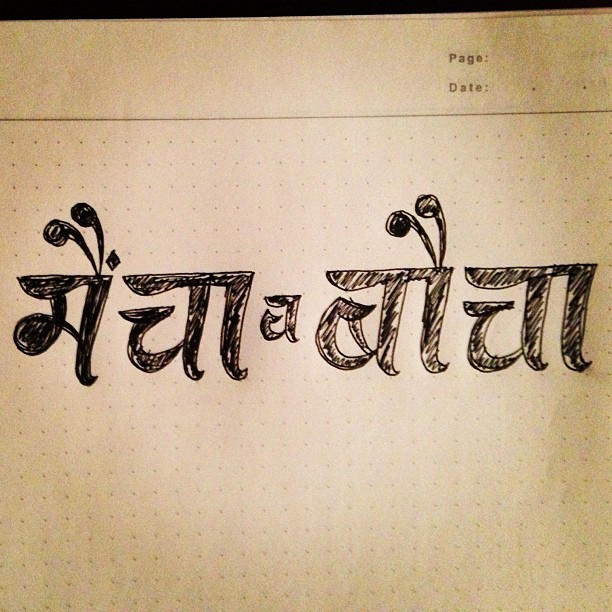 Page:
Date:
मैंचा व बौचा